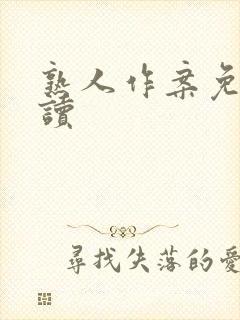 熟人作案免
讀
尋找失落的愛